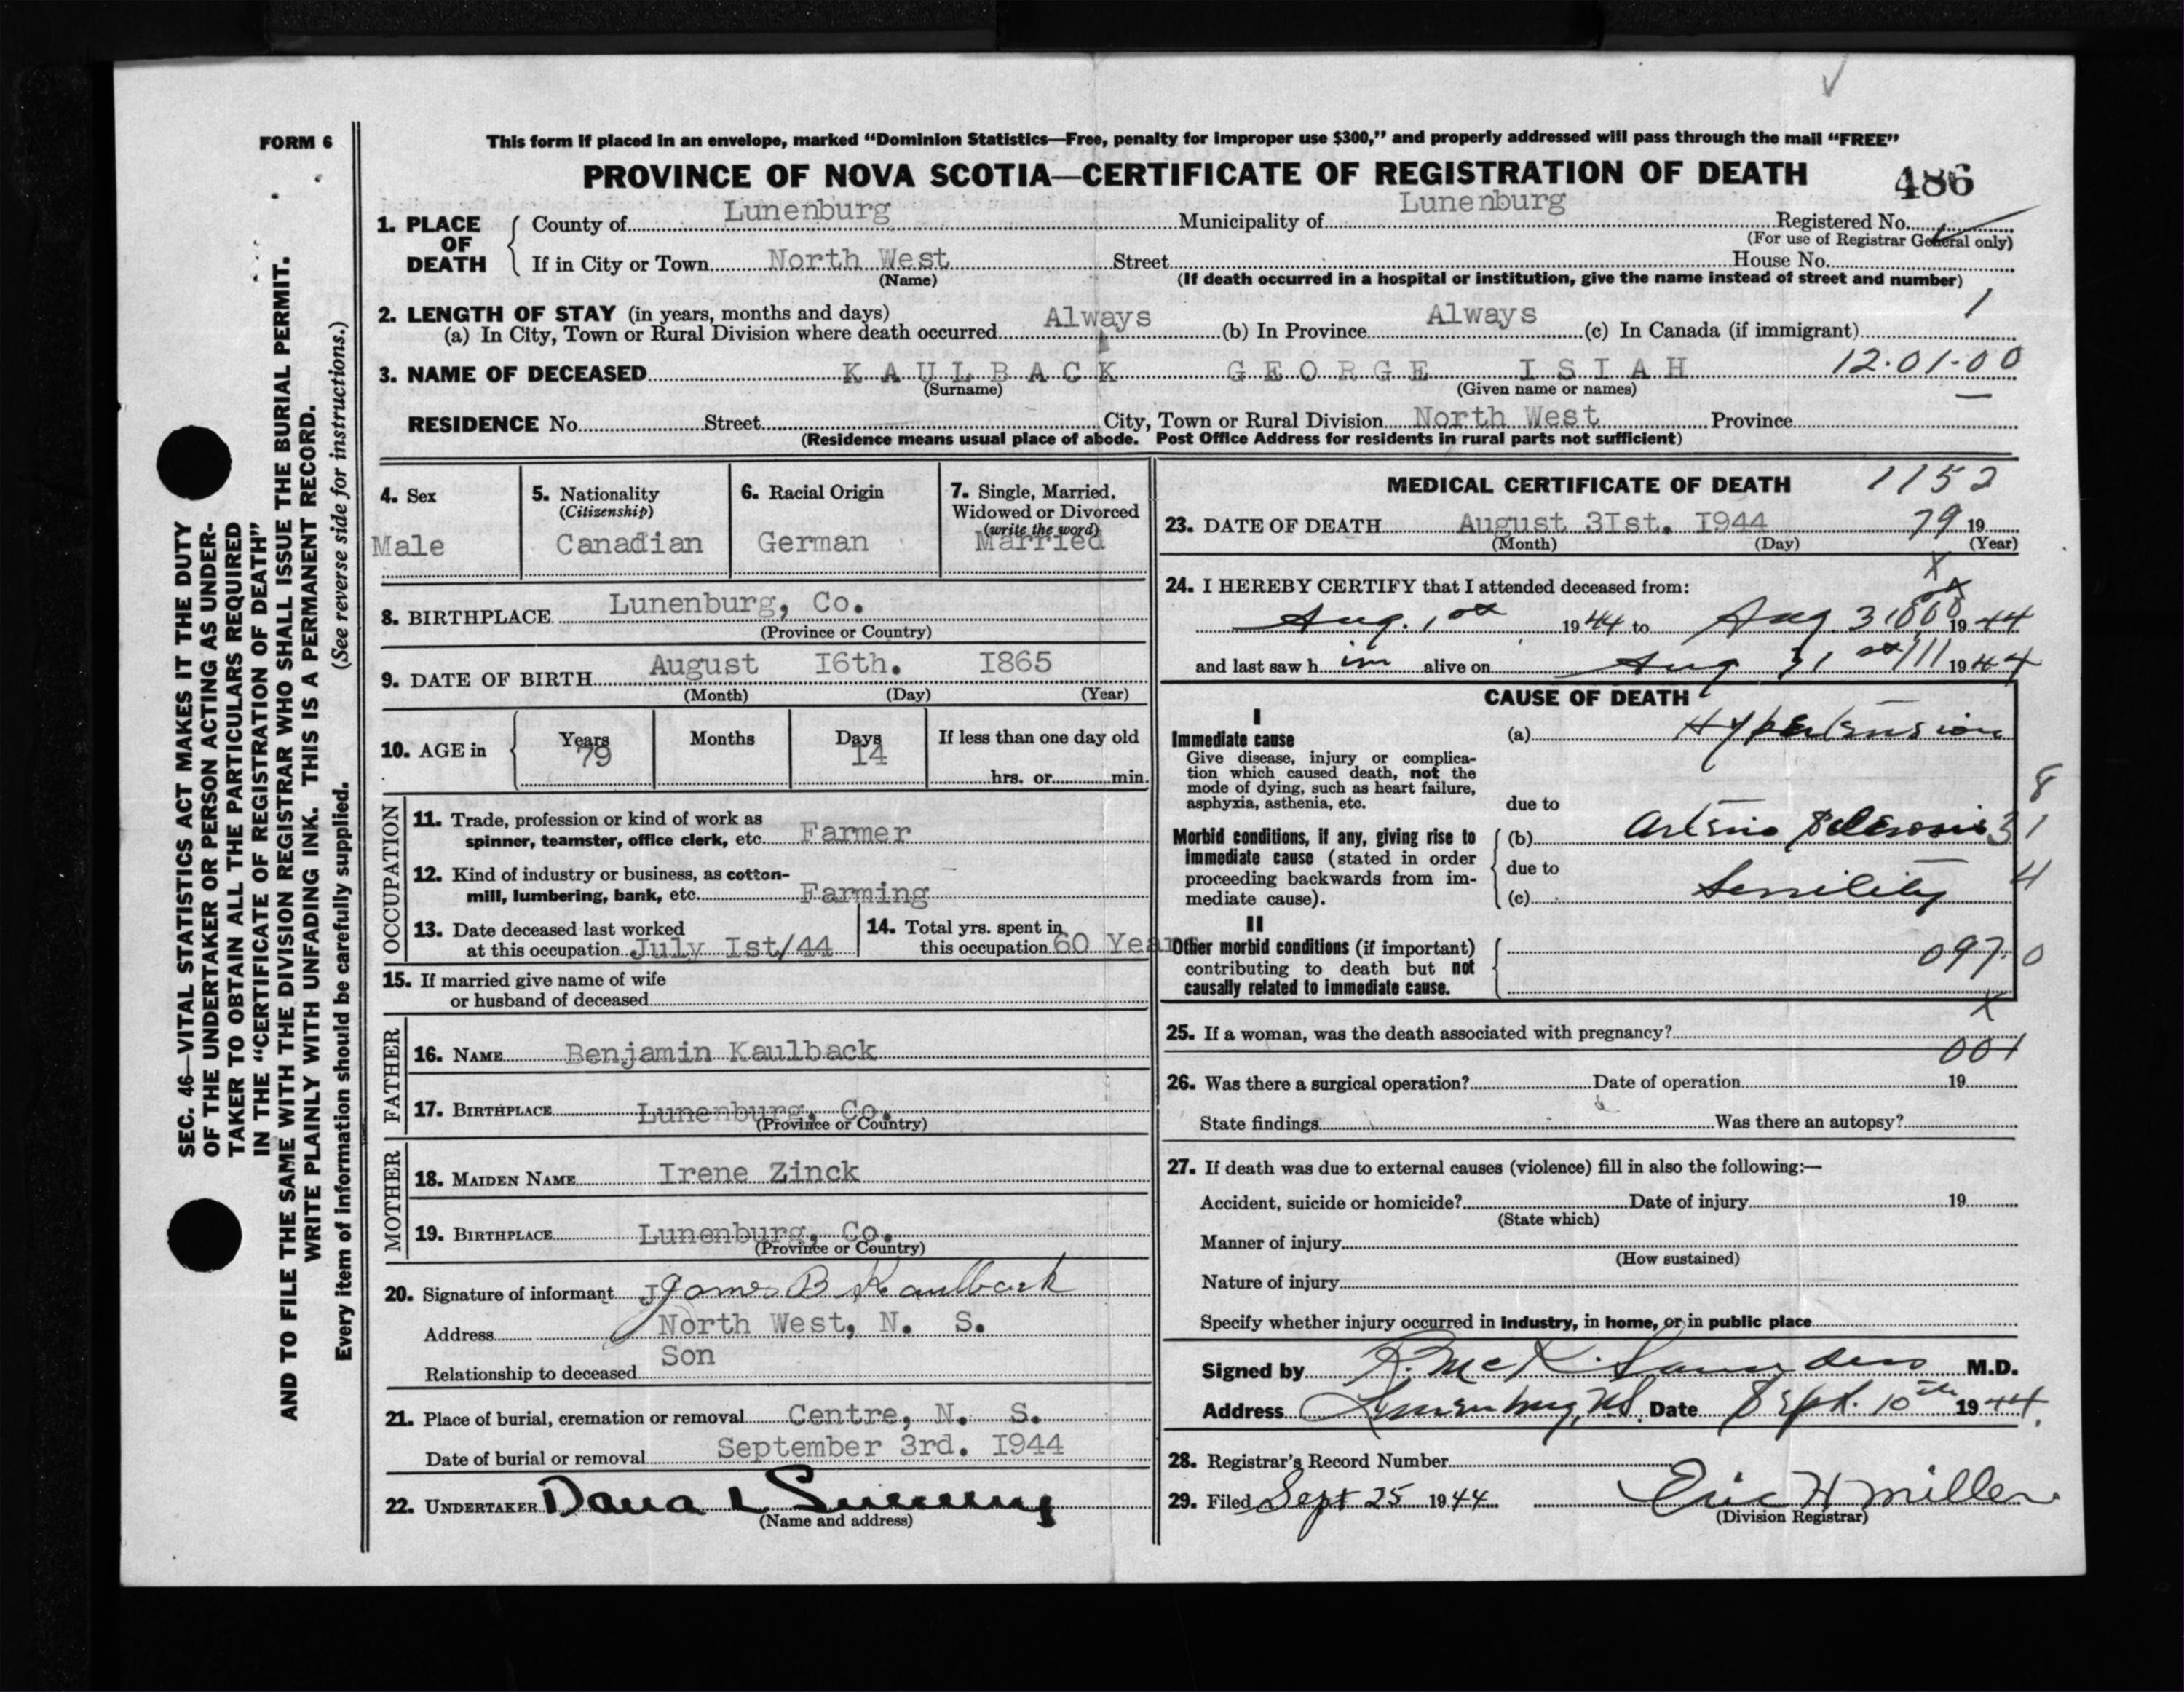 FORM 6
This form if placed in an envelope, marked “Dominion Statistics—Free, penalty for improper use $300,” and properly addressed will pass through the mail “FREE”
PROVINCE OF NOVA SCOTIA—CERTIFICATE OF REGISTRATION OF DEATH 486
1. PLACE OF DEATH County of Lunenburg Municipality of Lunenburg Registered No.
(For use of Registrar General only)
If in City or Town North West Street House No.
(Name) (If death occurred in a hospital or institution, give the name instead of street and number)
2. LENGTH OF STAY (in years, months and days) 1
(a) In City, Town or Rural Division where death occurred Always (b) In Province Always (c) In Canada (if immigrant)
3. NAME OF DECEASED KAULBACK GEORGE ISIAH 12.01-00
(Surname) (Given name or names)
RESIDENCE No. Street City, Town or Rural Division North West Province
(Residence means usual place of abode. Post Office Address for residents in rural parts not sufficient)
SEC. 46—VITAL STATISTICS ACT MAKES IT THE DUTY
OF THE UNDERTAKER OR PERSON ACTING AS UNDER-
TAKER TO OBTAIN ALL THE PARTICULARS REQUIRED
IN THE “CERTIFICATE OF REGISTRATION OF DEATH”
AND TO FILE THE SAME WITH THE DIVISION REGISTRAR WHO SHALL ISSUE THE BURIAL PERMIT.
WRITE PLAINLY WITH UNFADING INK. THIS IS A PERMANENT RECORD.
Every item of information should be carefully supplied. (See reverse side for instructions.)
4. Sex Male
5. Nationality (Citizenship) Canadian
6. Racial Origin German
7. Single, Married, Widowed or Divorced (write the word) Married
8. BIRTHPLACE Lunenburg, Co.
(Province or Country)
9. DATE OF BIRTH August I6th. I865
(Month) (Day) (Year)
10. AGE in Years 79 Months Days I4 If less than one day old
hrs. or min.
OCCUPATION
11. Trade, profession or kind of work as
spinner, teamster, office clerk, etc. Farmer
12. Kind of industry or business, as cotton-
mill, lumbering, bank, etc. Farming
13. Date deceased last worked
at this occupation July Ist/44
14. Total yrs. spent in
this occupation 60 Years
15. If married give name of wife
or husband of deceased
FATHER
16. NAME Benjamin Kaulback
17. BIRTHPLACE Lunenburg, Co.
(Province or Country)
MOTHER
18. MAIDEN NAME Irene Zinck
19. BIRTHPLACE Lunenburg, Co.
(Province or Country)
20. Signature of informant James B Kaulback
Address North West, N. S.
Relationship to deceased Son
21. Place of burial, cremation or removal Centre, N. S.
Date of burial or removal September 3rd. I944
22. UNDERTAKER Dana L
(Name and address)
MEDICAL CERTIFICATE OF DEATH 1152
23. DATE OF DEATH August 3Ist. I944 79 19
(Month) (Day) (Year)
24. I HEREBY CERTIFY that I attended deceased from:
Aug. 1st 1944 to Aug. 31 1944
and last saw h im alive on Aug 31st 1944
CAUSE OF DEATH
I
Immediate cause
Give disease, injury or complica-
tion which caused death, not the
mode of dying, such as heart failure,
asphyxia, asthenia, etc.
(a) Hypertension
due to 8
Morbid conditions, if any, giving rise to
immediate cause (stated in order
proceeding backwards from im-
mediate cause).
(b) Arterio Sclerosis 31
due to 4
(c) Senility
II
Other morbid conditions (if important)
contributing to death but not
causally related to immediate cause.
097.0
X
25. If a woman, was the death associated with pregnancy?
001
26. Was there a surgical operation? Date of operation 19
State findings Was there an autopsy?
27. If death was due to external causes (violence) fill in also the following:—
Accident, suicide or homicide? Date of injury 19
(State which)
Manner of injury
(How sustained)
Nature of injury
Specify whether injury occurred in industry, in home, or in public place
Signed by R. McK. Saunders M.D.
Address Lunenburg, N.S. Date Sept. 10th 1944.
28. Registrar's Record Number
29. Filed Sept 25 1944 Eric H Miller
(Division Registrar)